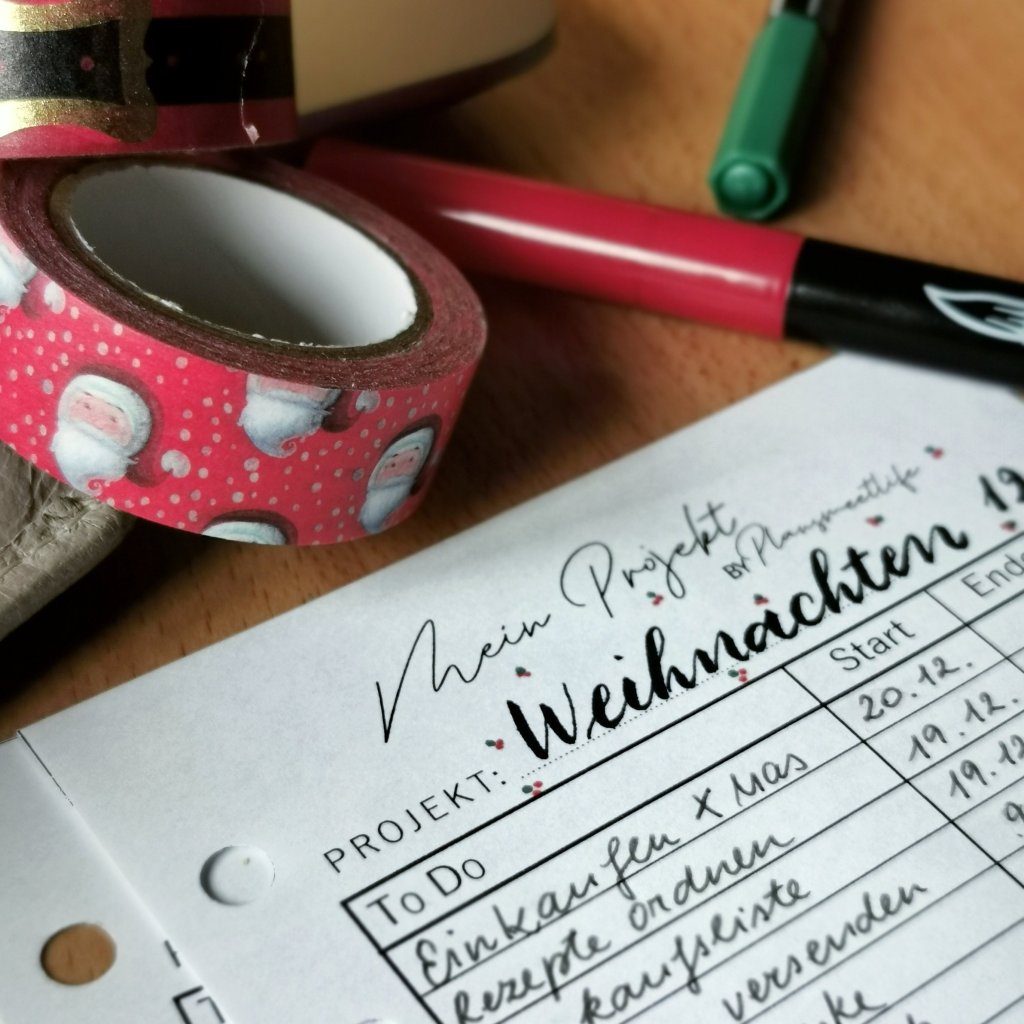 Mein Projekt
BY Plansmeetlife
PROJEKT: Weihnachten 19
To Do Start Ende
Einkaufen X Mas 20.12.
Rezepte ordnen 19.12.
kaufsliste 19.12
versenden 9